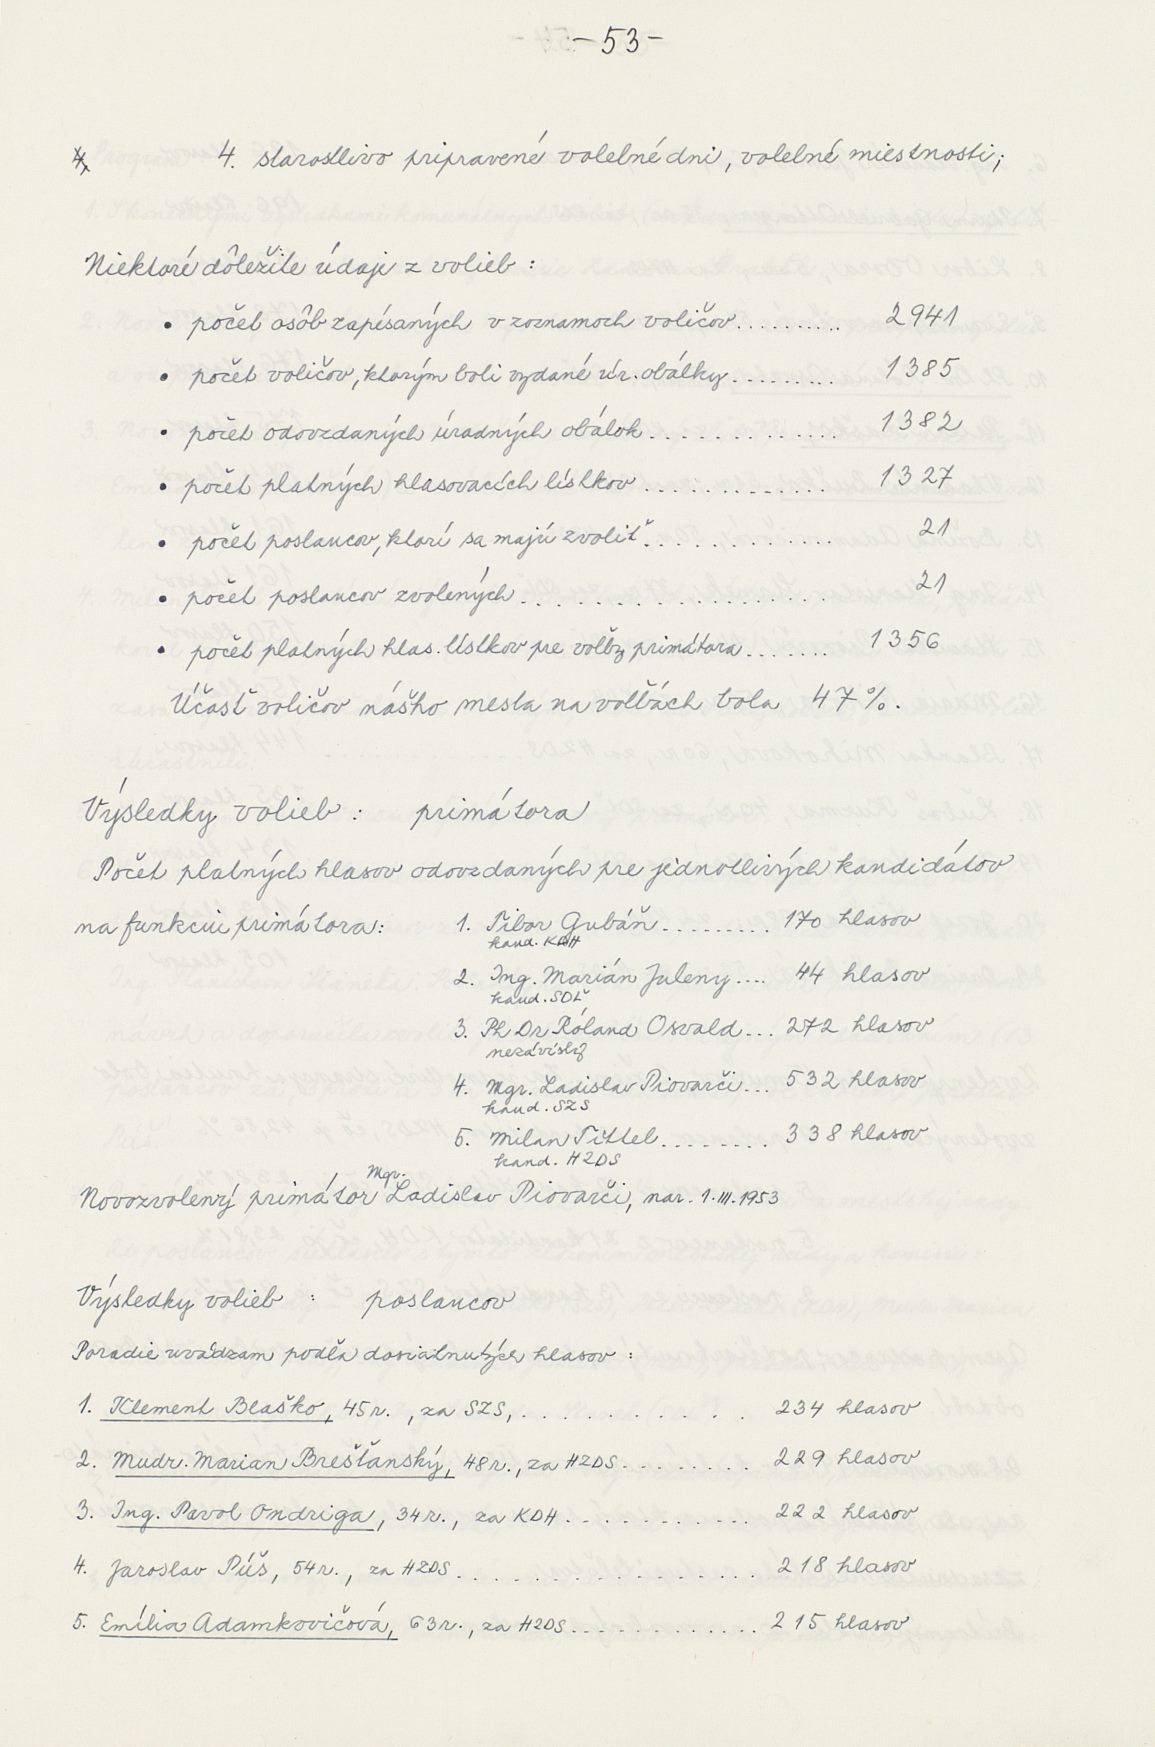 -53-
4. starostlivo pripravené volebné dni, volebné miestnosti;
Niektoré dôležite údaje z volieb :
• počet osôb zapísaných v zoznamoch voličov.......... 2941
• počet voličov, ktorým boli vydané úr. obálky......... 1385
• počet odovzdaných úradných obálok............. 1382
• počet platných hlasovacích lístkov............ 1327
• počet poslancov, ktorí sa majú zvoliť............ 21
• počet poslancov zvolených................. 21
• počet platných hlas. lístkov pre voľby primátora....... 1356
Účasť voličov nášho mesta na voľbách bola 47%.
Výsledky volieb : primátora
Počet platných hlasov odovzdaných pre jednotlivých kandidátov
na funkciu primátora: 1. Tibor Gubáň......... 170 hlasov
kand. KDH
2. Ing. Marián Juleny.... 44 hlasov
kand. SDĽ
3. Ph Dr Róland Osvald... 272 hlasov
nezávislý
4. Mgr. Ladislav Piovarči... 532 hlasov
kand. SZS
5. Milan Tittel........ 338 hlasov
kand. HZDS
Novozvolený primátor Mgr. Ladislav Piovarči, nar. 1.III.1953
Výsledky volieb : poslancov
Poradie uvádzam podľa dosiahnutých hlasov :
1. Klement Blaško, 45 r. , za SZS, .......... 234 hlasov
2. Mudr. Marian Brešťanský, 48 r., za HZDS........ 229 hlasov
3. Ing. Pavol Ondriga, 34 r., za KDH........... 222 hlasov
4. Jaroslav Púš, 54 r., za HZDS................. 218 hlasov
5. Emília Adamkovičová, 63 r., za HZDS............ 215 hlasov